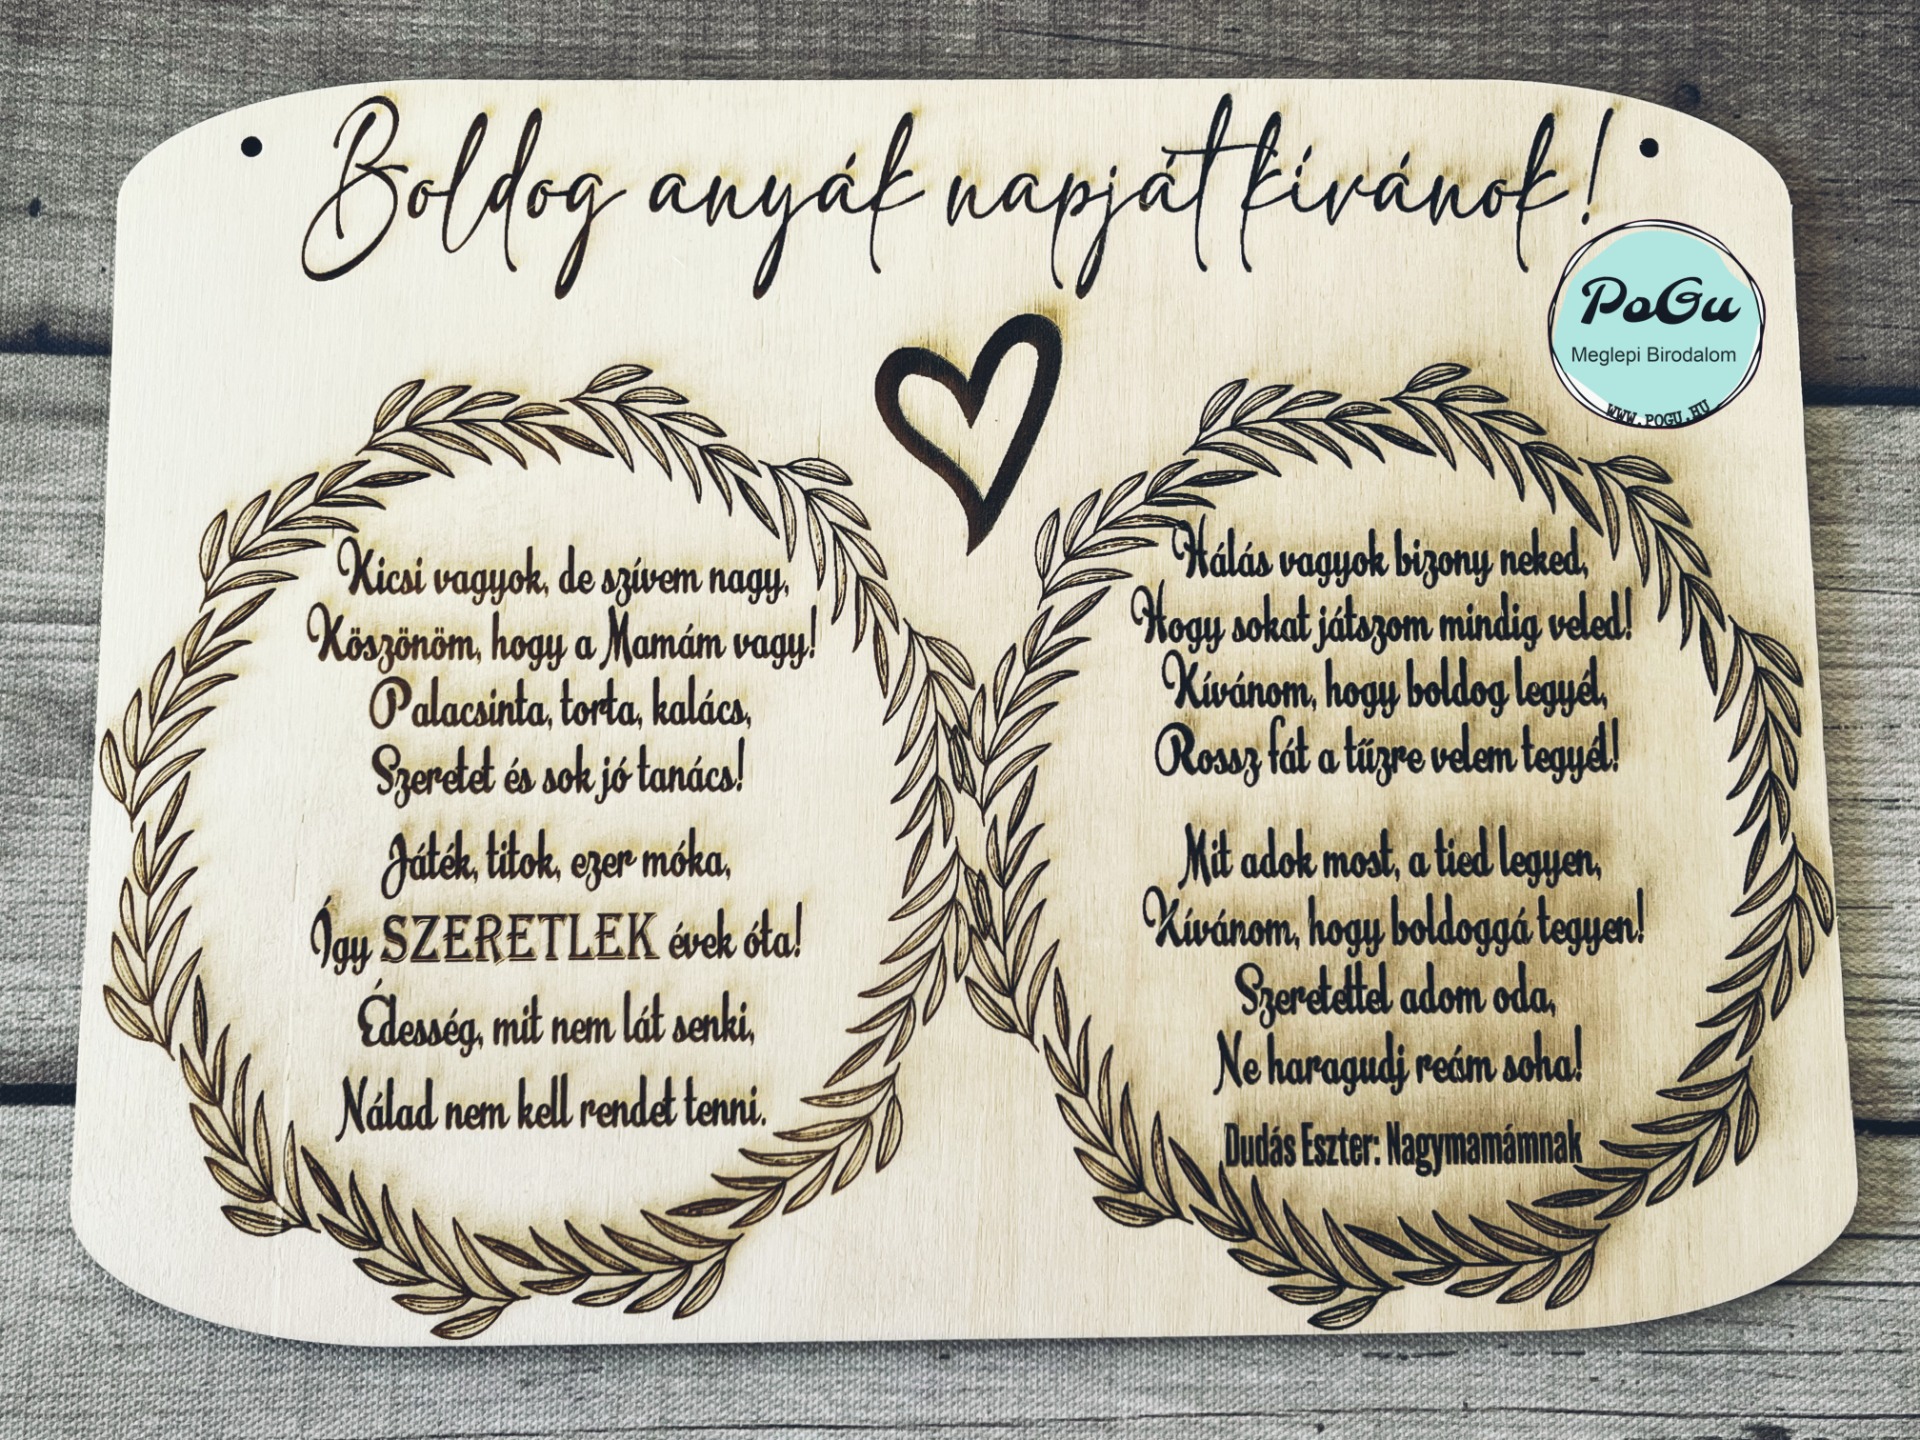 Boldog anyák napját kívánok!
PoGu
Meglepi Birodalom
WWW.POGU.HU
Kicsi vagyok, de szívem nagy,
Köszönöm, hogy a Mamám vagy!
Palacsinta, torta, kalács,
Szeretet és sok jó tanács!
Játék, titok, ezer móka,
Így SZERETLEK évek óta!
Édesség, mit nem lát senki,
Nálad nem kell rendet tenni.
Hálás vagyok bizony neked,
Hogy sokat játszom mindig veled!
Kívánom, hogy boldog legyél,
Rossz fát a tűzre velem tegyél!
Mit adok most, a tied legyen,
Kívánom, hogy boldoggá tegyen!
Szeretettel adom oda,
Ne haragudj reám soha!
Dudás Eszter: Nagymamámnak